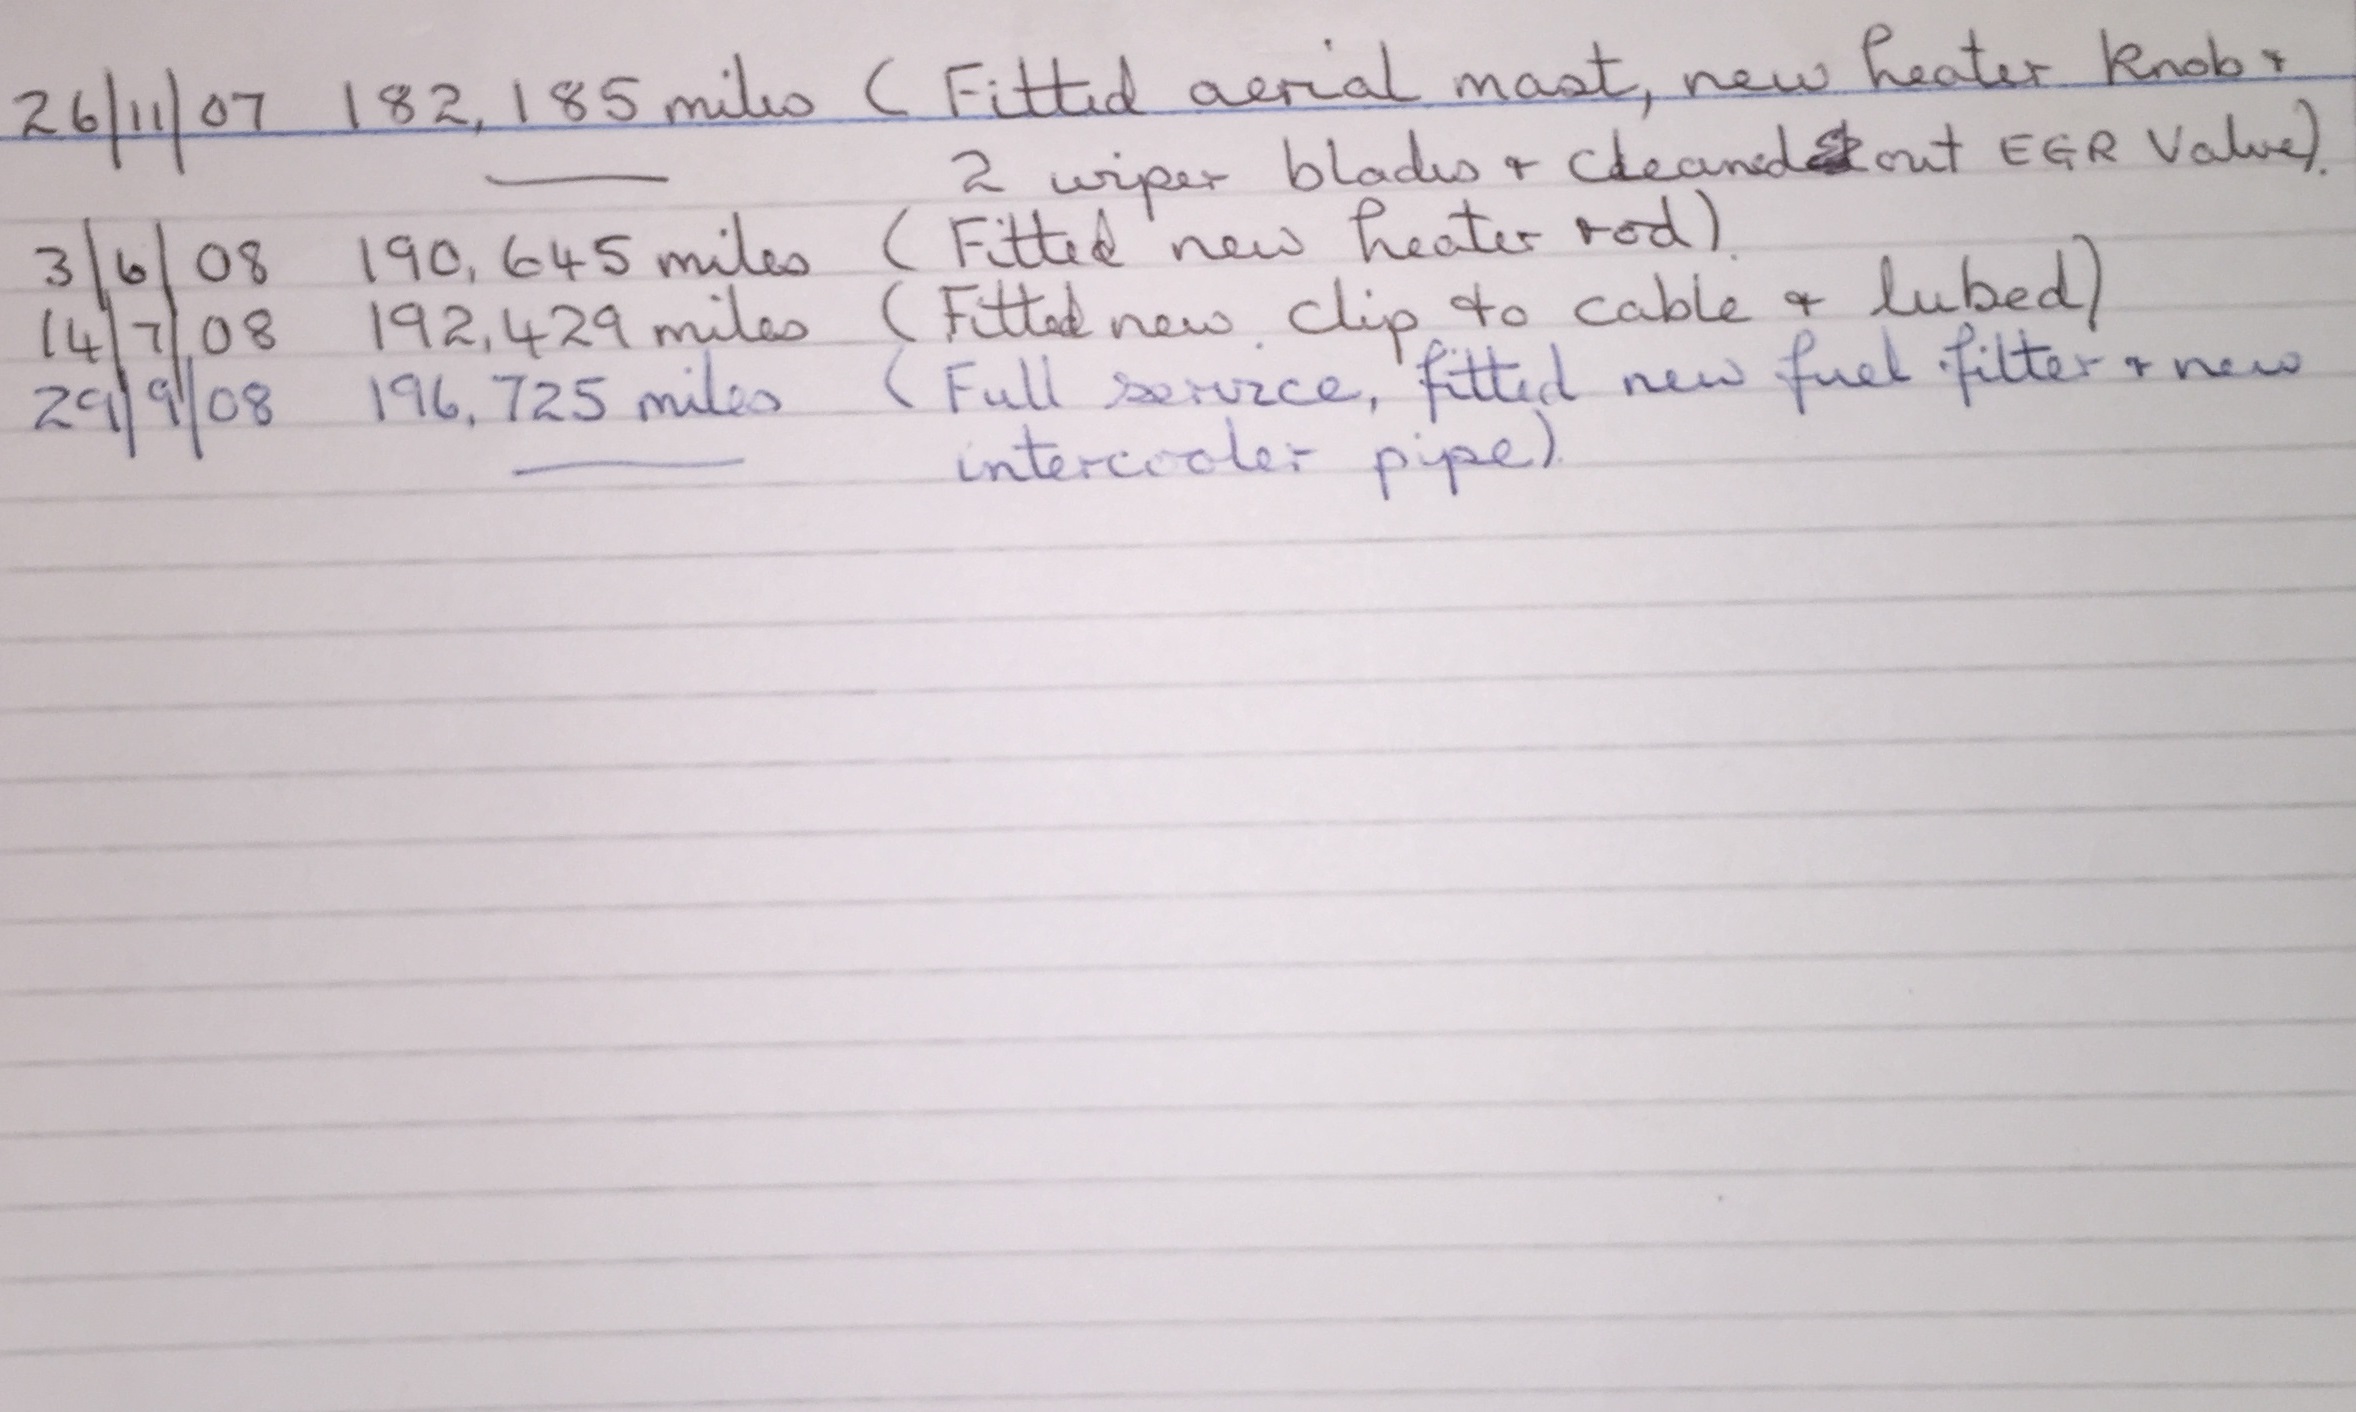 26/11/07 182,185 miles (Fitted aerial mast, new heater knob +
2 wiper blades + cleaned out EGR Valve).
3/6/08 190,645 miles (Fitted new heater rod)
14/7/08 192,429 miles (Fitted new clip to cable + lubed)
29/9/08 196,725 miles (Full service, fitted new fuel filter + new
intercooler pipe).